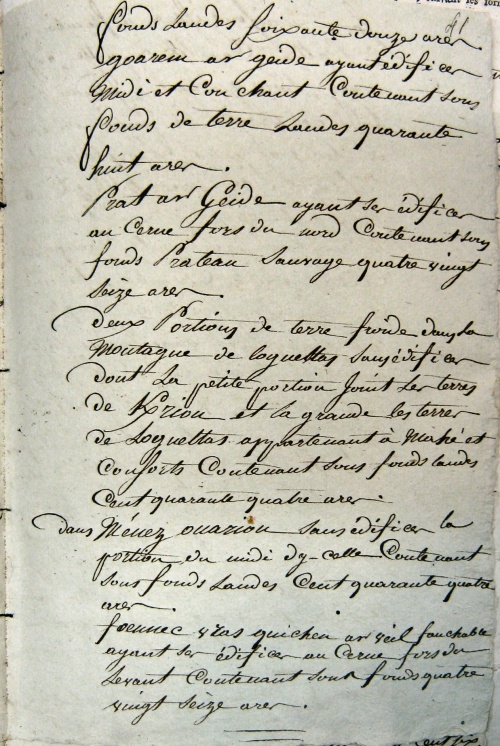 41
fonds Landes soixante douze ares
goarem ar geide ayant édifices
Midi et Couchant Contenant sous
fonds de terre Landes quarante
huit ares.
Prat ar Geide ayant ses édifices
au Cerne fors du nord Contenant sous
fonds Prateau Sauvage quatre vingt
seize ares.
deux Portions de terre froide dans La
Montagne de loquettas sans édifices
dont La petite portion Joint Les terres
de Kprion et la grande les terres
de Loquettas appartenant à Mahé et
Consorts Contenant sous fonds landes
Cent quarante quatre ares.
dans Ménez ouarion sans édifices la
portion du midi dy-celle Contenant
sous fonds Landes Cent quarante quatre
ares.
foennec vras quichen ar veil fauchable
ayant ses édifices au Cerne fors du
Levant Contenant sous fonds quatre
vingt seize ares.